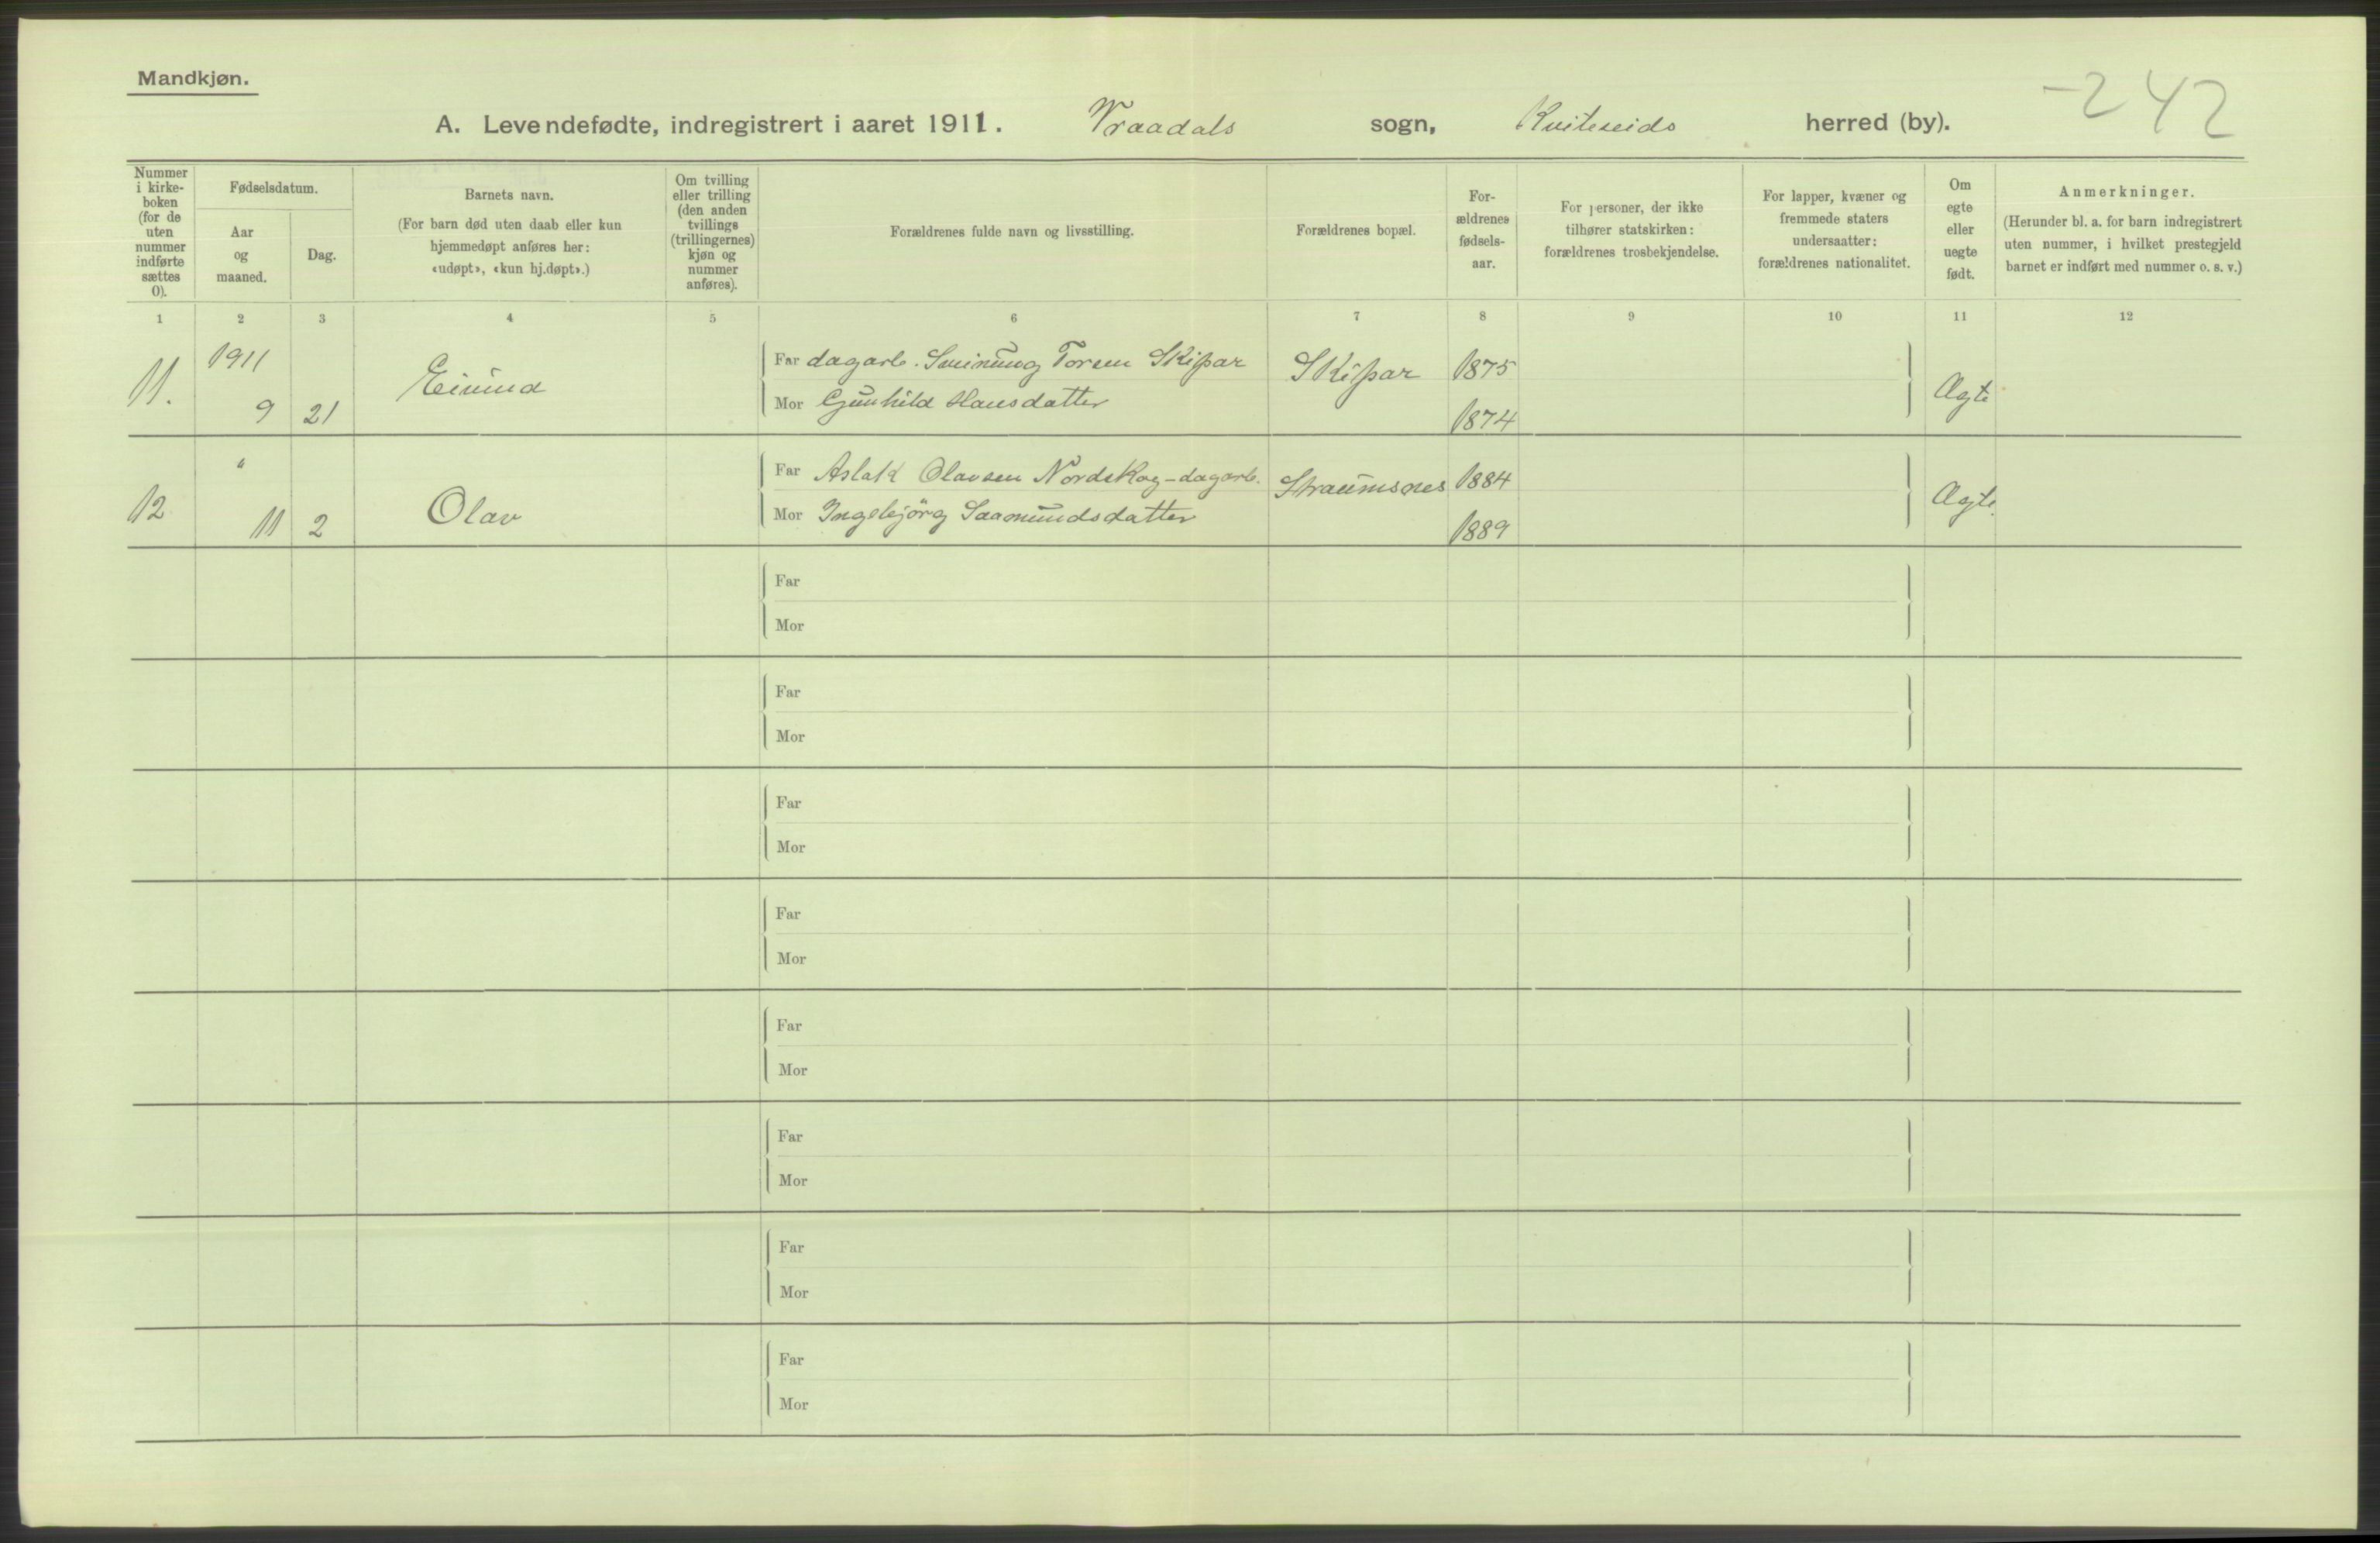 Mandkjøn.
-242
A. Levendefødte, indregistrert i aaret 1911. Vraadals sogn, Kviteseids herred (by).
Nummer i kirke- boken (for de uten nummer indførte sættes 0).
Fødselsdatum.
Aar og maaned.
Dag.
Barnets navn.
(For barn død uten daab eller kun
hjemmedøpt anføres her:
«udøpt», «kun hj.døpt».)
Om tvilling
eller trilling
(den anden
tvillings
(trillingernes)
kjøn og
nummer
anføres).
Forældrenes fulde navn og livsstilling.
Forældrenes bopæl.
For-
ældrenes
fødsels-
aar.
For personer, der ikke
tilhører statskirken:
forældrenes trosbekjendelse.
For lapper, kvæner og
fremmede staters
undersaatter:
forældrenes nationalitet.
Om
egte
eller
uegte
født.
Anmerkninger.
(Herunder bl. a. for barn indregistrert
uten nummer, i hvilket prestegjeld
barnet er indført med nummer o. s. v.)
1 2 3 4 5 6 7 8 9 10 11 12
11. 1911 9 21 Eivind
Far dagarb. Sveinung Torsen Skipar Skipar 1875
Mor Gunhild Hansdatter 1874 Ægte
12 " 11 2 Olav
Far Aslak Olavsen Nordskog - dagarb. Straumsnes 1884
Mor Ingebjörg Saamundsdatter 1889 Ægte.
Far
Mor
Far
Mor
Far
Mor
Far
Mor
Far
Mor
Far
Mor
Far
Mor
Far
Mor